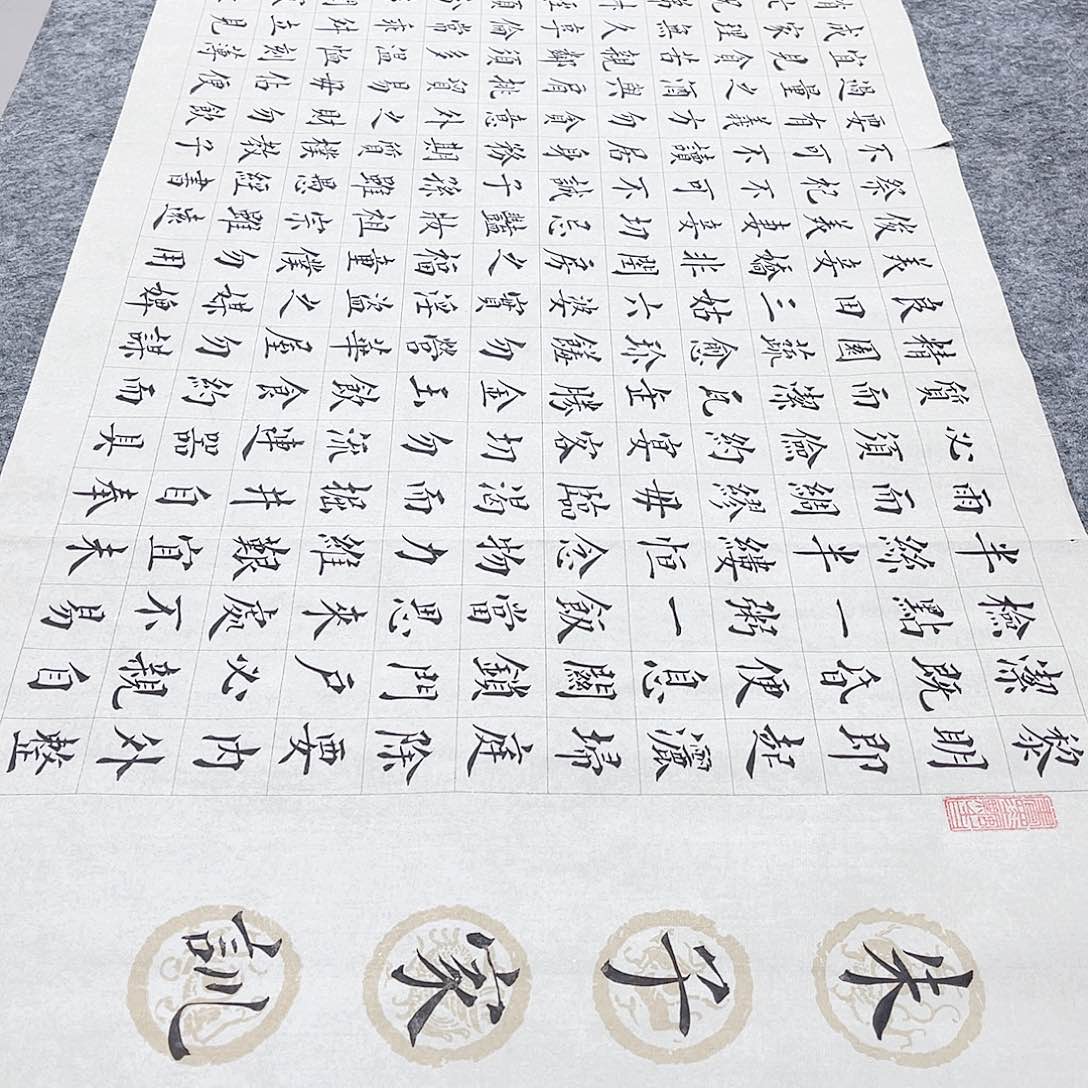 朱子家訓
黎明即起灑掃庭除要內外整
潔既昏便息關鎖門戶必親自
檢點一粥一飯當思來處不易
半絲半縷恒念物力維艱宜未
雨而綢繆毋臨渴而掘井自奉
必須儉約宴客切勿流連器具
質而潔瓦缶勝金玉飲食約而
精園蔬愈珍饈勿營華屋勿謀
良田三姑六婆實淫盜之媒婢
美妾嬌非閨房之福童僕勿用
俊美妻妾切忌豔妝祖宗雖遠
祭祀不可不誠子孫雖愚經書
不可不讀居身務期質樸教子
要有義方勿貪意外之財勿飲
過量之酒與肩挑貿易毋佔便
宜見貧苦親鄰須多溫恤刻薄
成家理無久享倫常乖舛立見